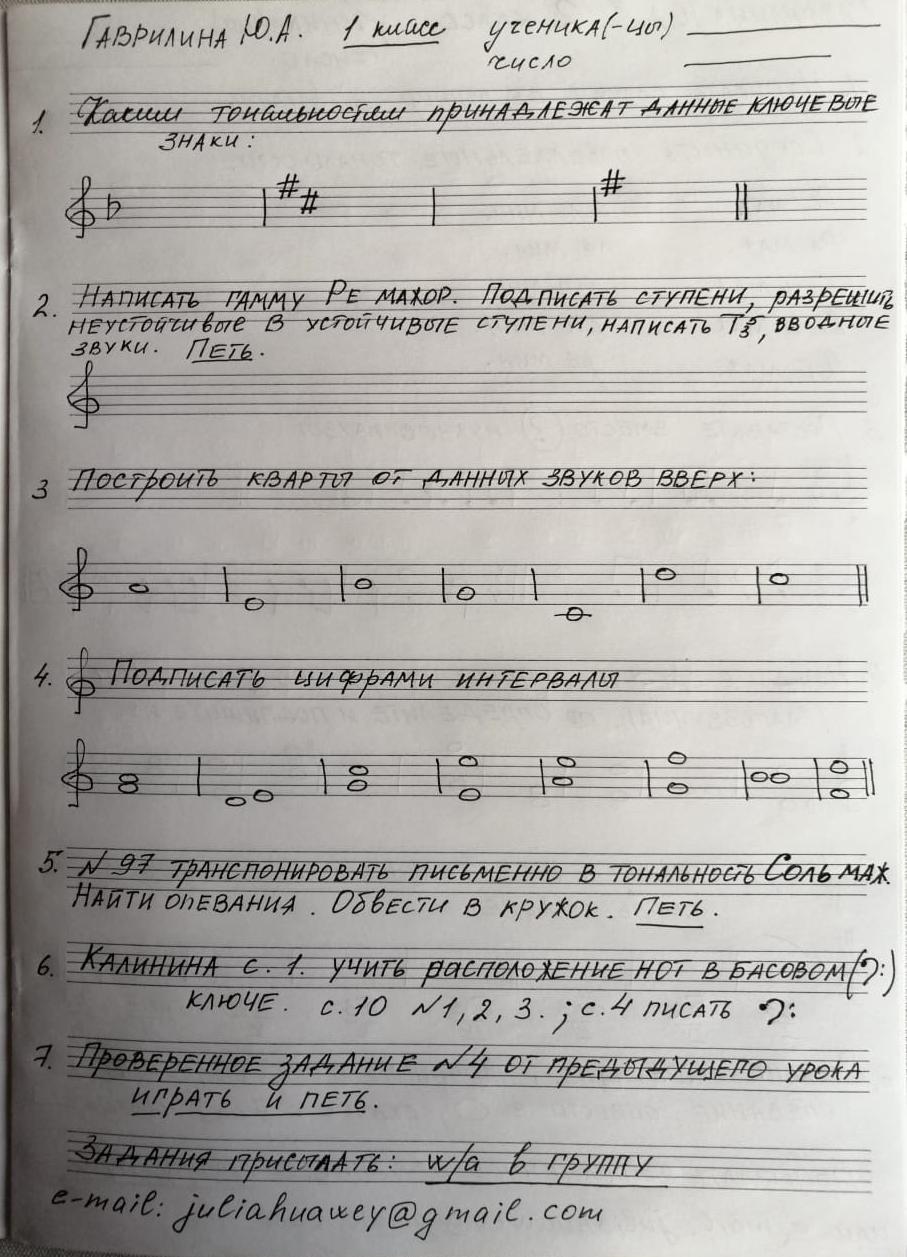 Гаврилина Ю.А. 1 класс ученика(-цы)
число
1. Каким тональностям принадлежат данные ключевые
знаки:
2. Написать гамму Ре мажор. Подписать ступени, разрешить
неустойчивые в устойчивые ступени, написать T5/3, вводные
звуки. Петь.
3 Построить кварты от данных звуков вверх:
4. Подписать цифрами интервалы
5. №97 транспонировать письменно в тональность Соль маж.
Найти опевания. Обвести в кружок. Петь.
6. Калинина с. 1. учить расположение нот в басовом (𝄢)
ключе. с.10 №1, 2, 3. ; с.4 писать 𝄢
7. Проверенное задание №4 от предыдущего урока
играть и петь.
Задания присылать: w/a в группу
e-mail: juliahuawey@gmail.com